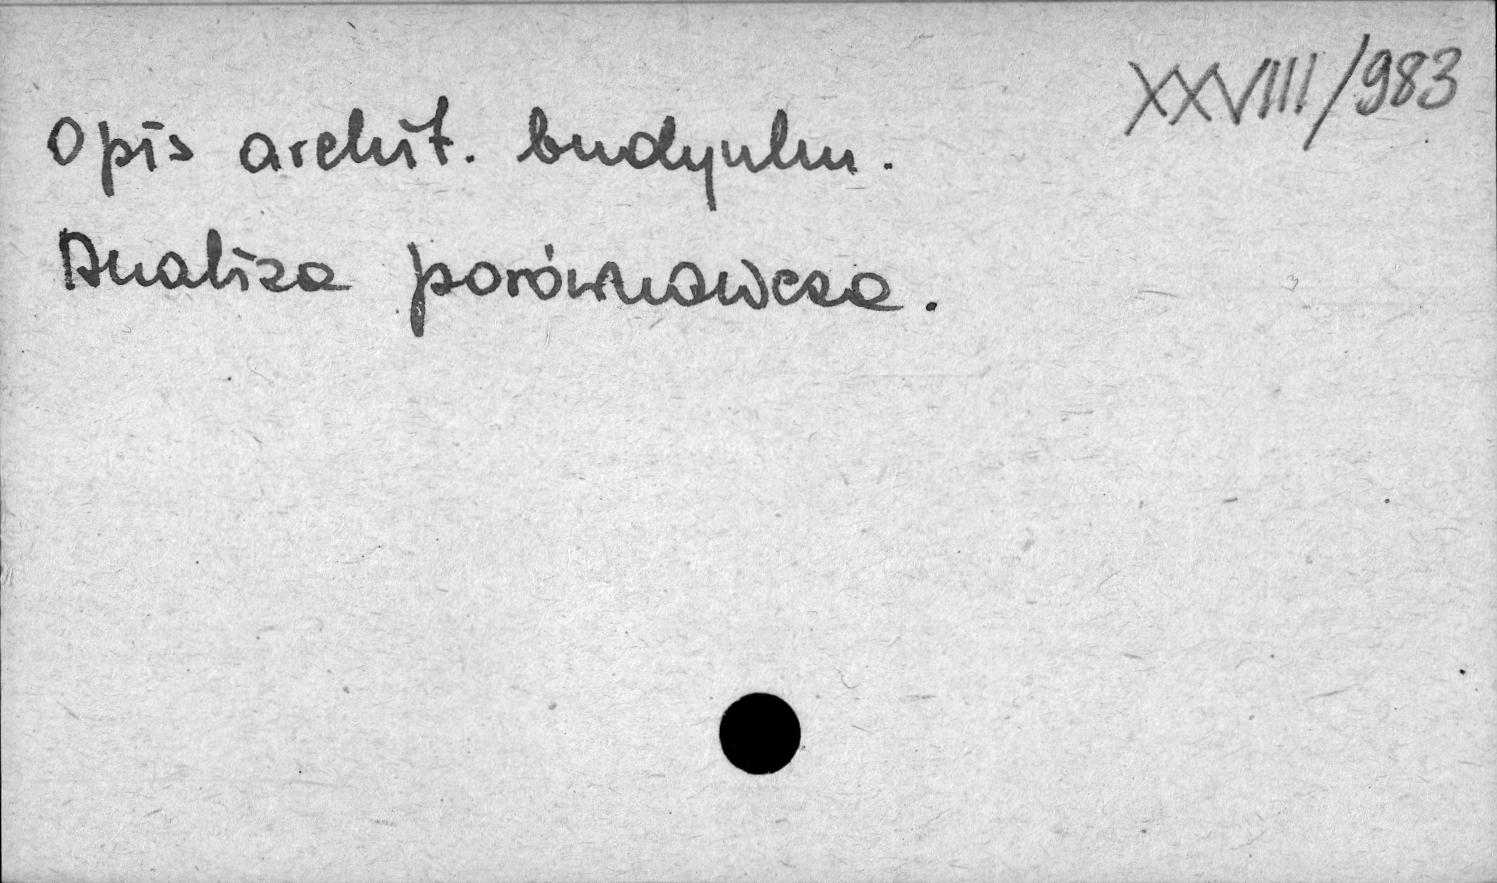 XXVIII/983
Opis archit. budynku.
Analiza porównawcza.